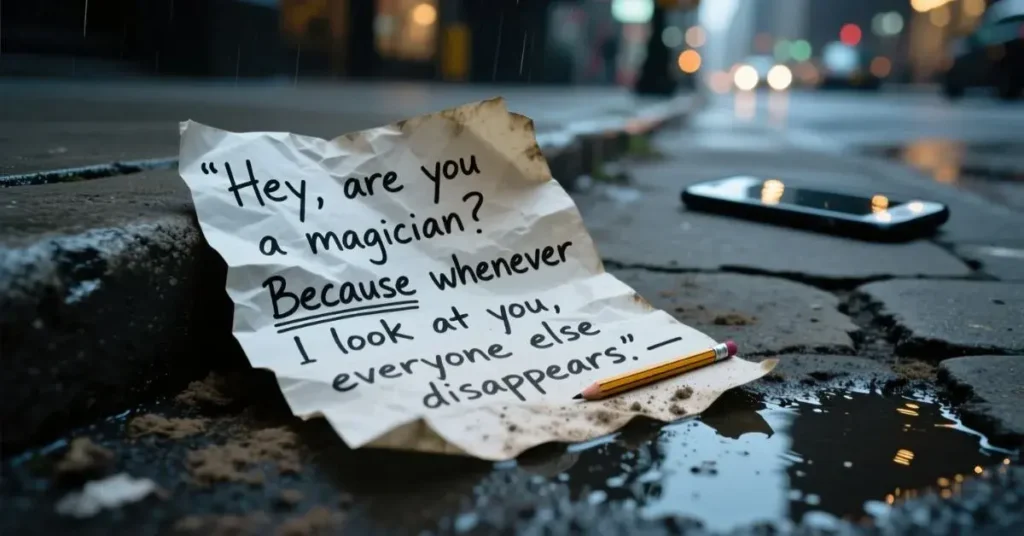 “Hey, are you
a magician?
Because whenever
I look at you,
everyone else
disappears.” —